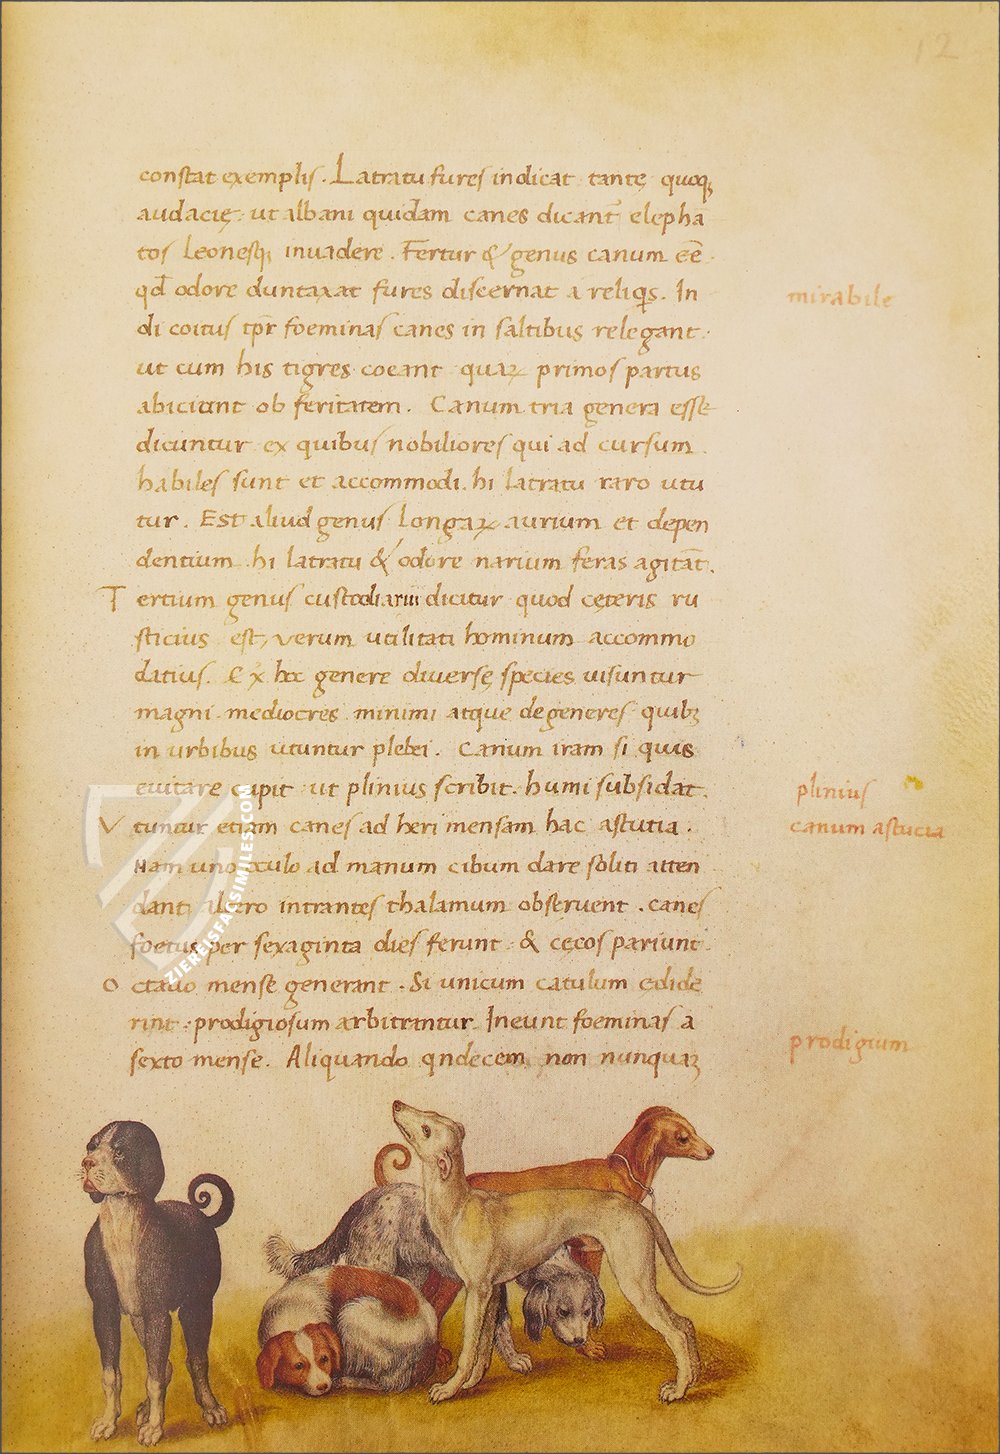 12
constat exemplis. Latratu fures indicat tantę quoq;
audacię: ut albani quidam canes dicant̄ elepha
tos leonesq; inuadere. Fertur & genus canum eē
qd̄ odore duntaxat fures discernat a reliq̄s. In
mirabile
di coitus tp̄r foeminas canes in saltibus relegant.
ut cum his tigres coeant quaꝝ primos partus
abiciunt ob feritatem. Canum tria genera esse
dicuntur ex quibus nobiliores qui ad cursum
habiles sunt et accommodi. hi latratu raro utu
tur. Est aliud genus longaꝝ aurium et depen
dentium. hi latratu & odore narium feras agitāt.
Tertium genus custodiarium dicitur quod cęteris ru
sticius est, verum utilitati hominum accommo
datius. Ex hoc genere diuersę species uisuntur
magni mediocres minimi atque degeneres quibꝫ
in urbibus utuntur plebei. Canum iram si quis
euitare cupit ut plinius scribit. humi subsidat.
plinius
Vtuntur etiam canes ad heri mensam hac astutia.
canum astucia
Nam uno oculo ad manum cibum dare soliti atten
dant, altero intrantes thalamum obseruent. canes
foetus per sexaginta dies ferunt: & cęcos pariunt.
Octauo mense generant. Si unicum catulum edide
rint: prodigiosum arbitrantur. Ineunt foeminas a
prodigium
sexto mense. Aliquando qndecem non nunquaꝫ
ZIEREISFACSIMILES.COM